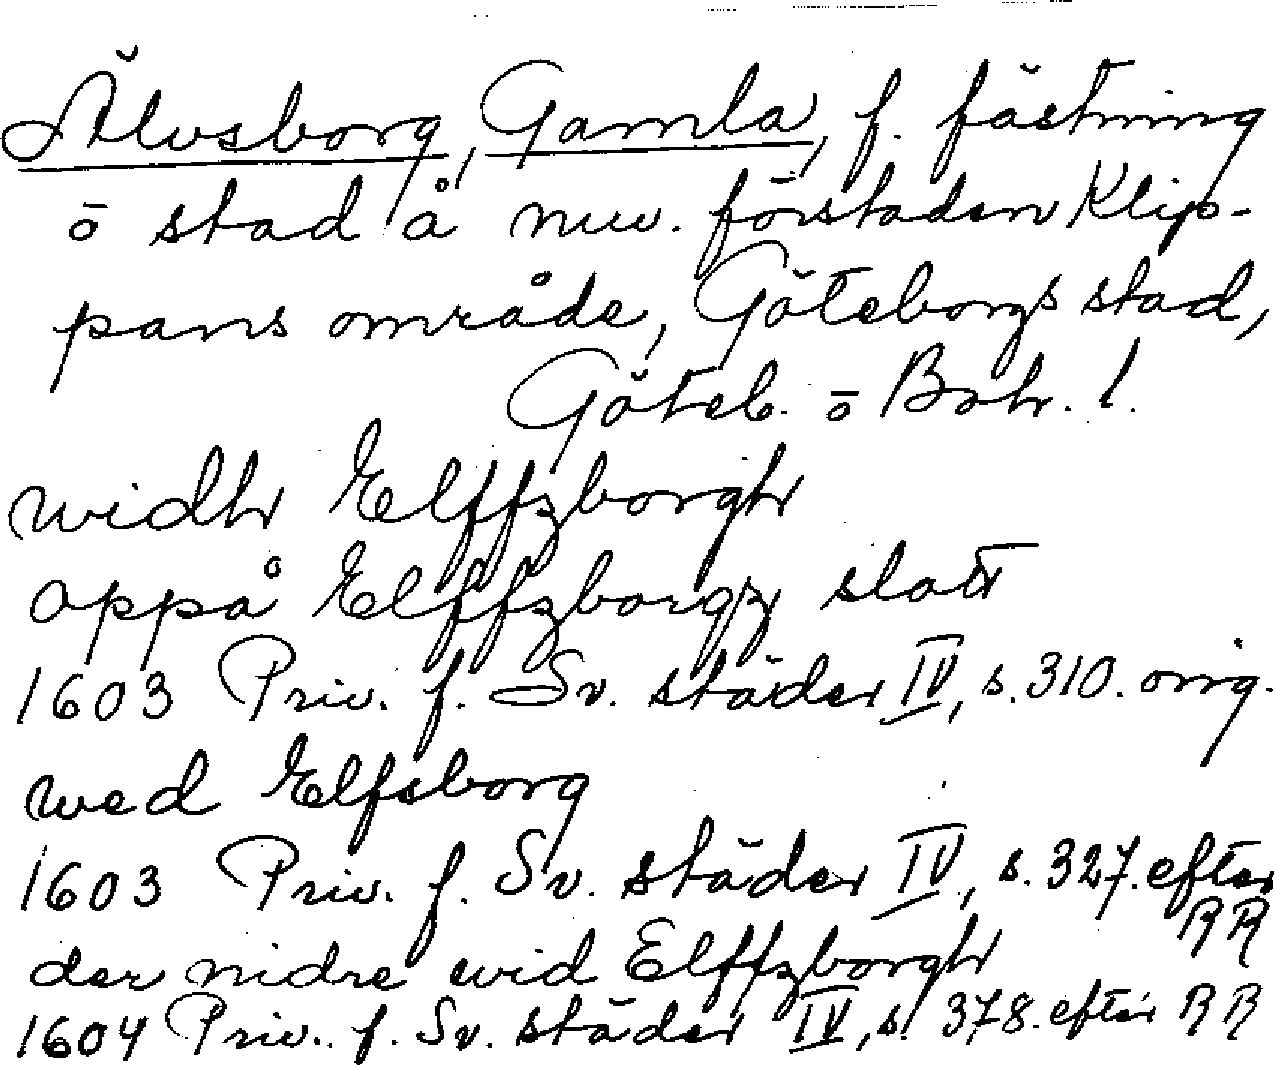 Älvsborg, Gamla, f. fästning
o stad å nuv. förstaden Klip-
pans område, Göteborgs stad,
Göteb. o Boh. l.
widh Elffzborgh
oppå Elffzborgz slott
1603 Priv. f. Sv. städer IV, s. 310. orig.
wed Elfsborg
1603 Priv. f. Sv. städer IV, s. 327. efter
RR
der nidre wid Elffzborgh
1604 Priv. f. Sv. städer IV, s. 378. efter RR